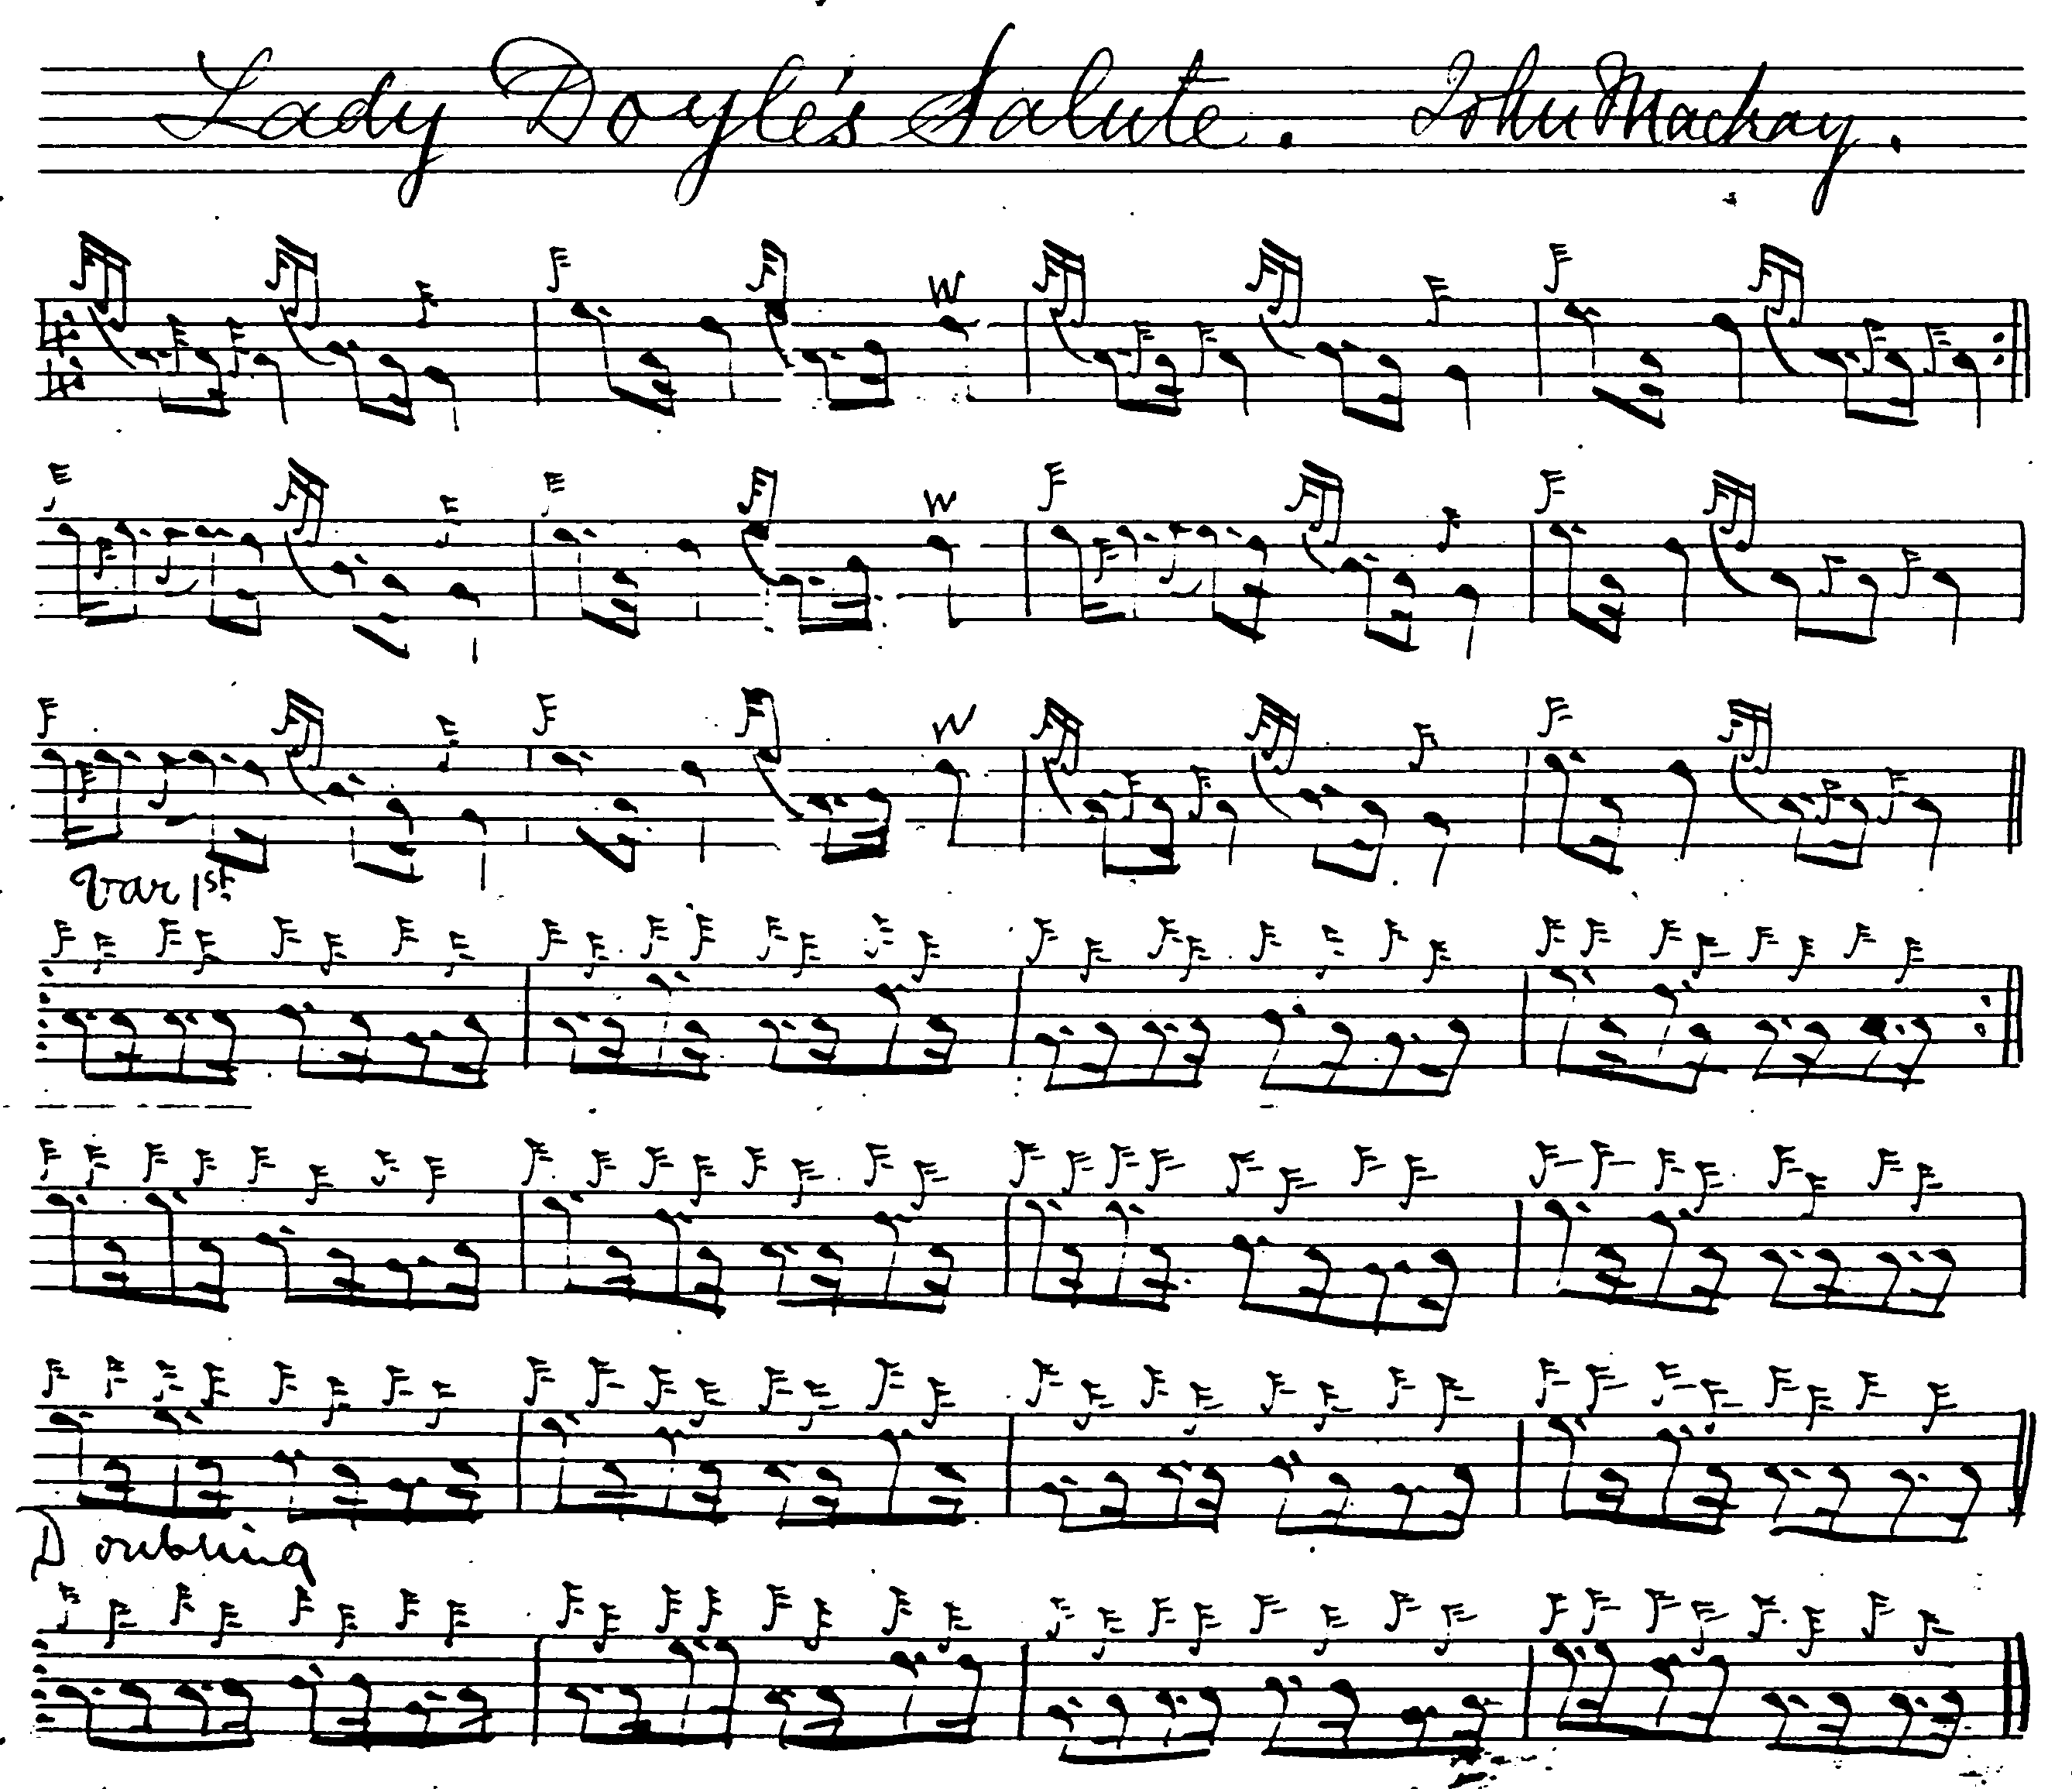 Lady Doyle's Salute. John Mackay.
W
W
W
Var 1st
Doubling